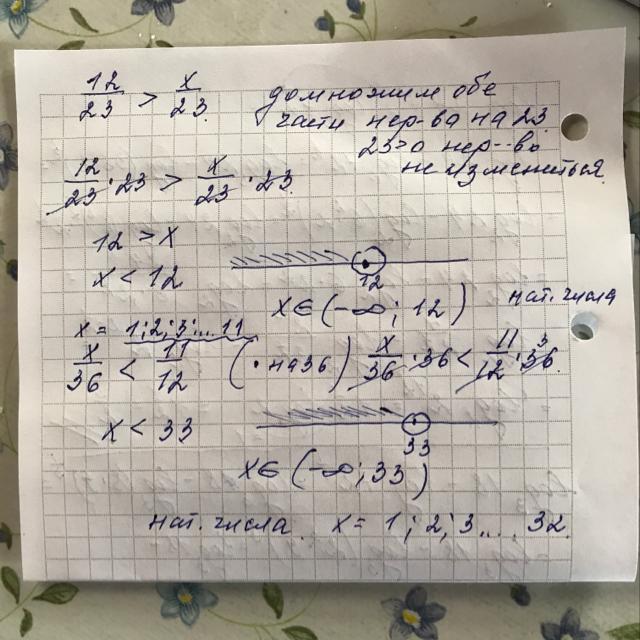 12/23 > x/23 домножим обе
части нер-ва на 23
23>0 нер-во
не измениться.
12/23 · 23 > x/23 · 23
12 > x
x < 12
12
x ∈ (-∞; 12) нат. числа
x = 1; 2; 3; ... 11
x/36 < 11/12 (· на 36) x/36 · 36 < 11/12 · 36 3
x < 33
33
x ∈ (-∞; 33)
нат. числа x = 1; 2; 3 .... 32